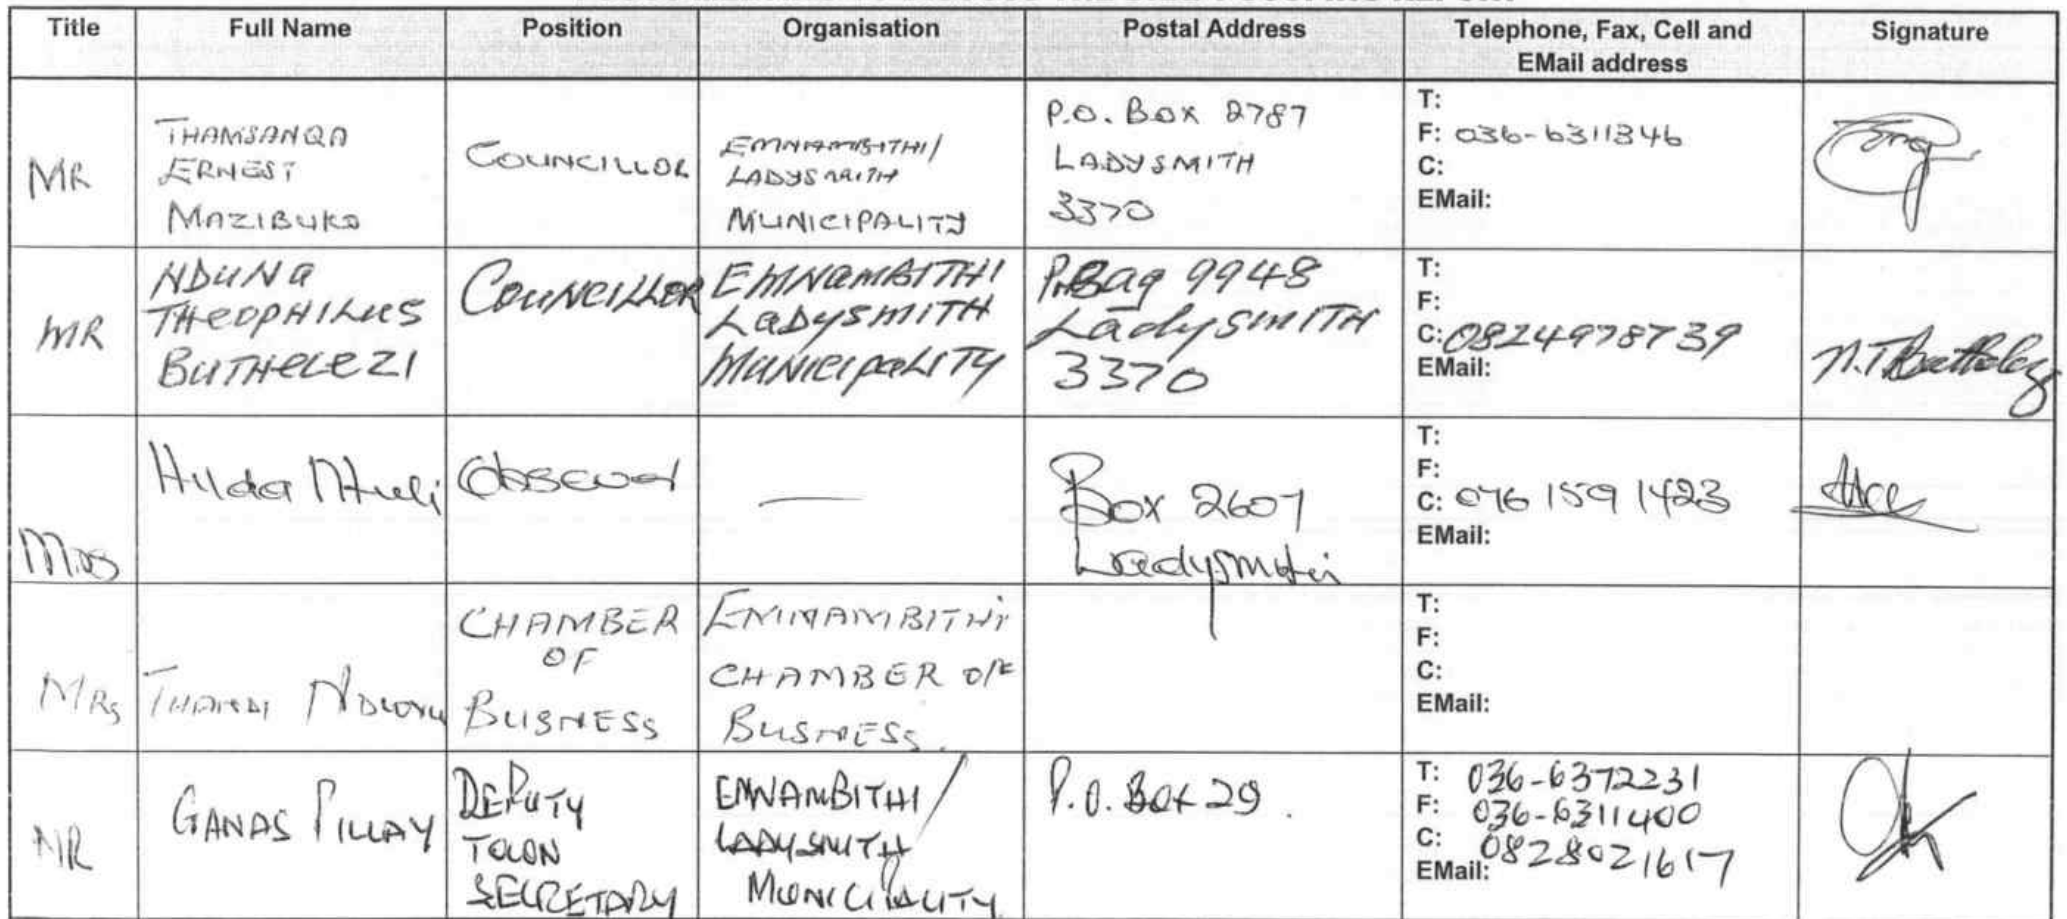 Title Full Name Position Organisation Postal Address Telephone, Fax, Cell and EMail address Signature
MR
THAMSANQA
ERNEST
MAZIBUKO
COUNCILLOR
EMNAMBITHI/
LADYSMITH
MUNICIPALITY
P.O. Box 2787
LADYSMITH
3370
T:
F: 036-6311346
C:
EMail:
MR
NDUNA
THEOPHILUS
BUTHELEZI
COUNCILLOR
EMNAMBITHI
LADYSMITH
MUNICIPALITY
P.Bag 9948
LadySMITH
3370
T:
F:
C: 0824978739
EMail:
N.T Buthelezi
Mrs
Hilda Ntuli
Box 2607
Ladysmith
T:
F:
C: 076 159 1423
EMail:
MRs
THANDI
CHAMBER
OF
BUSNESS
EMNAMBITHI
CHAMBER OF
BUSNESS.
T:
F:
C:
EMail:
MR
GANAS PILLAY
DEPUTY
TOWN
SECRETARY
EMNAMBITHI/
LADYSMITH
MUNICIPALITY
P.O. Box 29.
T: 036-6372231
F: 036-6311400
C: 0828021617
EMail: